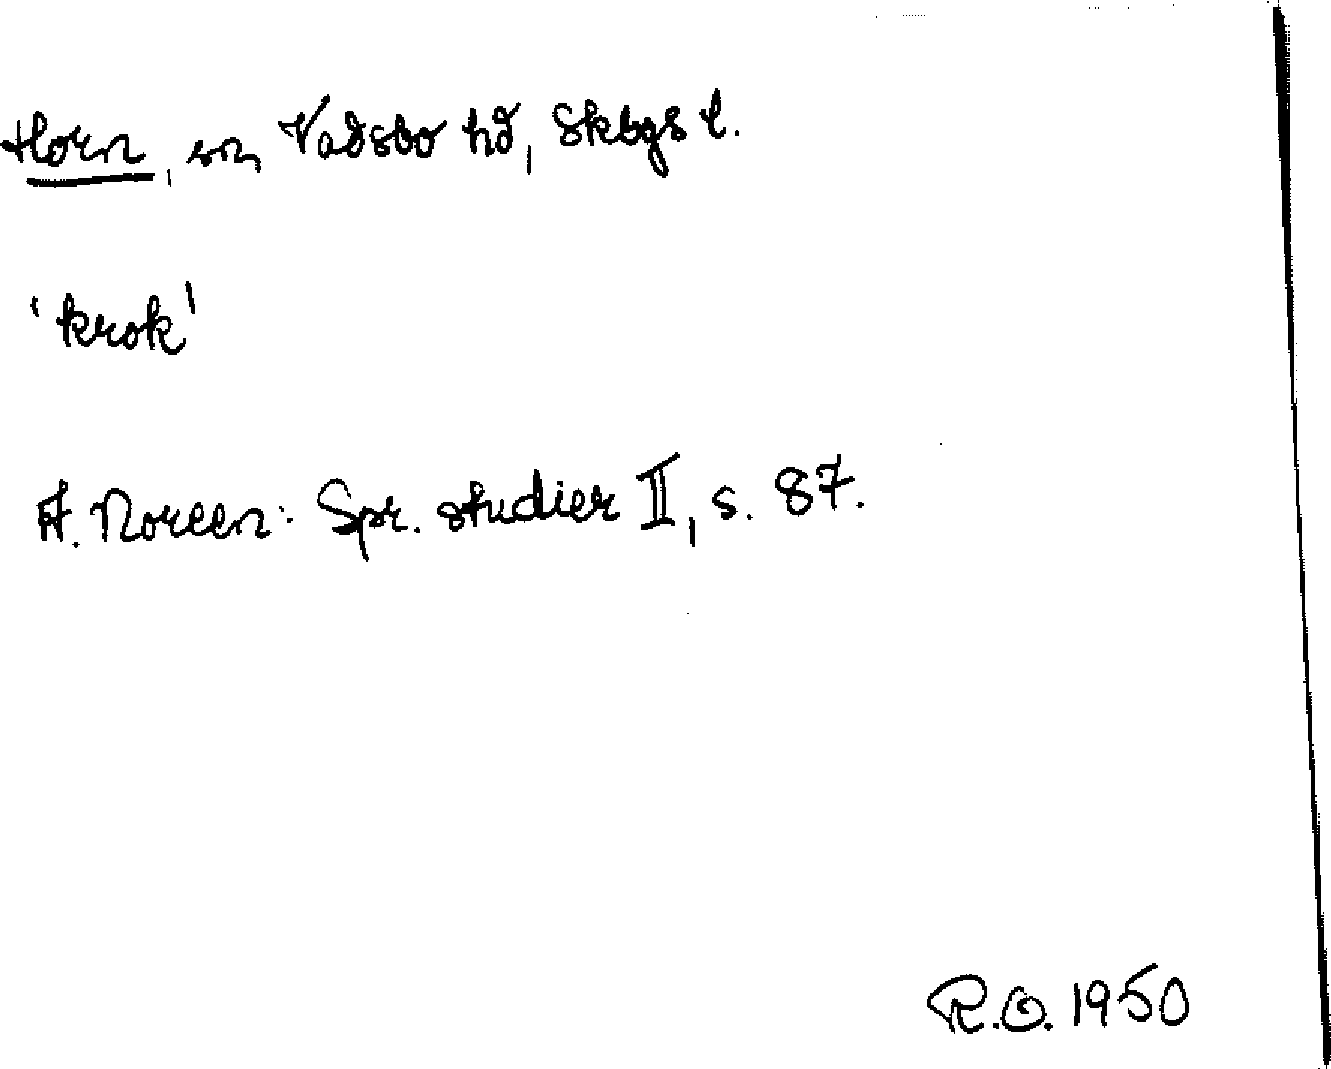 Horn, sn, Vadsbo hd, Skbgs l.
'krok'
A. Noreen: Spr. studier II, s. 87.
R.O. 1950